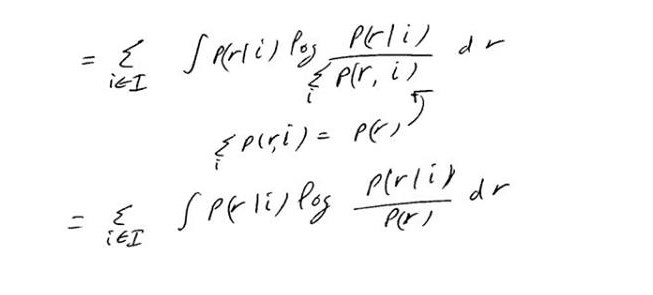 = Σ_{i∈I} ∫ P(r|i) log P(r|i) / Σ_i P(r, i) dr
Σ_i P(r,i) = P(r)
= Σ_{i∈I} ∫ P(r|i) log P(r|i) / P(r) dr